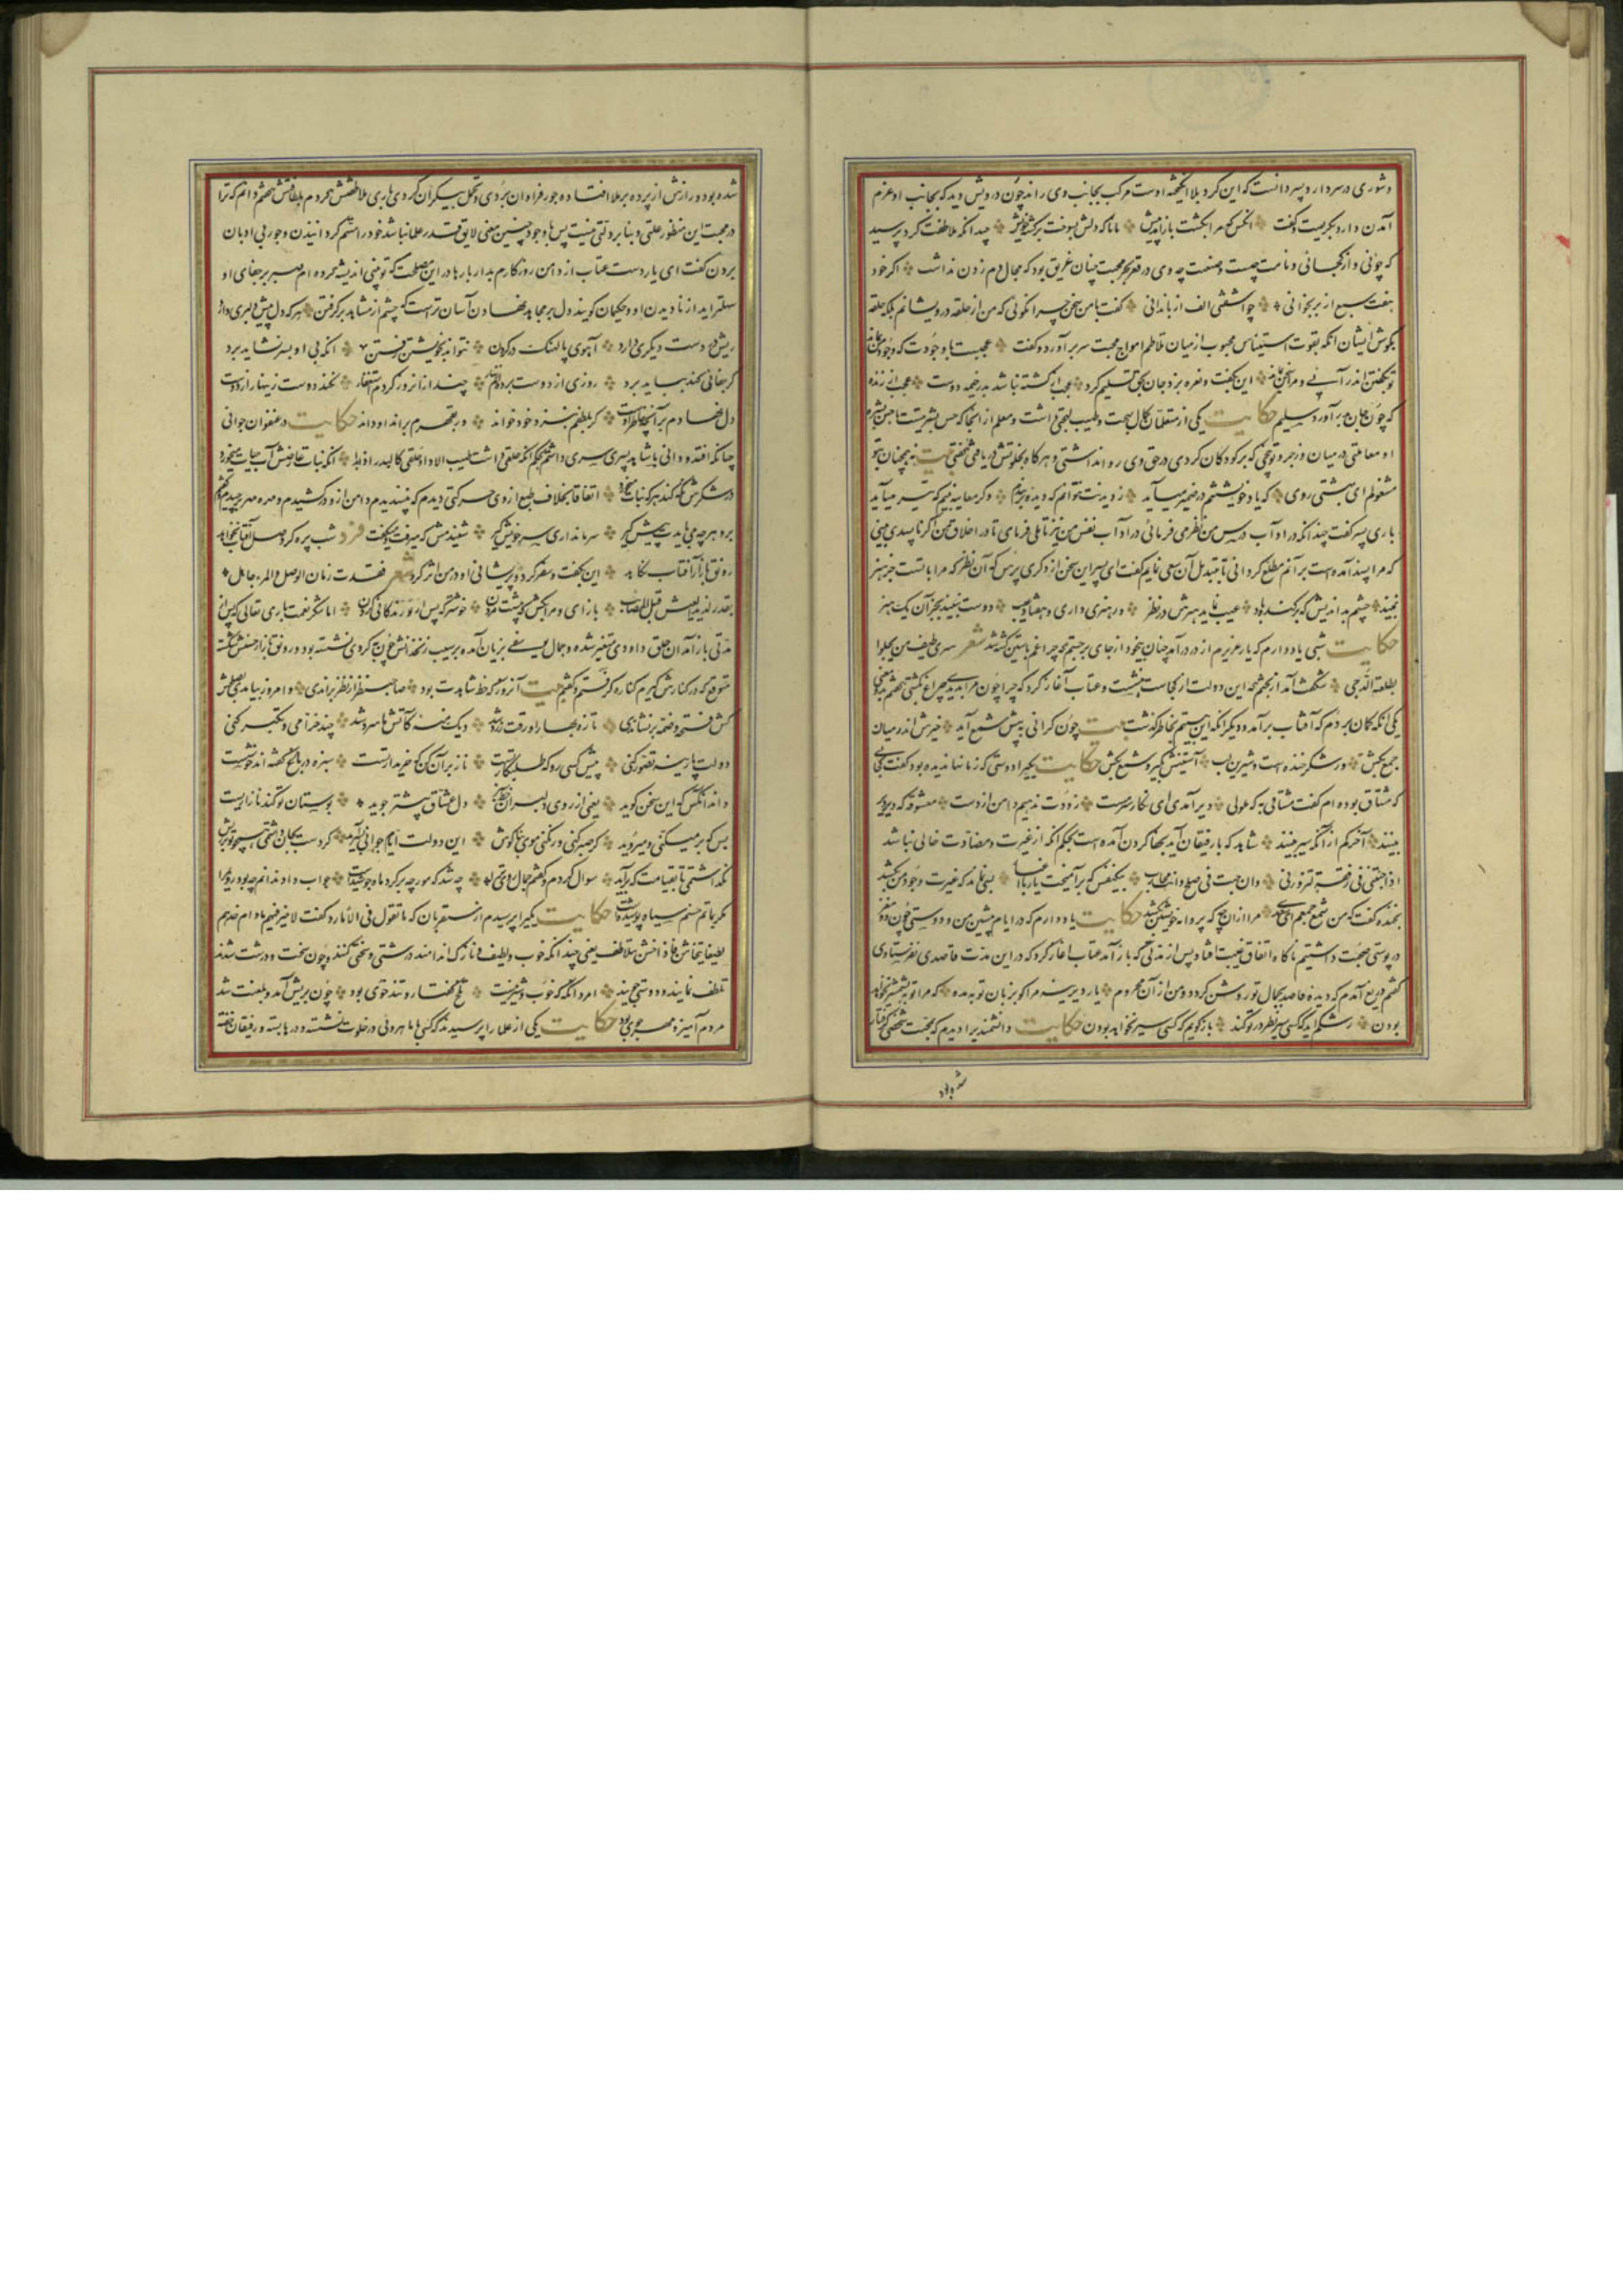 و شوری در سر دارد پسر دانست که این گرد بلا انگیخته اوست مرکب بجانب وی راند چون درویش دید که بجانب او عزم
آمدن دارد بگریست و گفت آنکس که مرا بکشت باز آمد پیش مانا که دلش بسوخت بر کشته خویش چندانکه ملاطفت کرد و پرسید
که چونی و از کجائی و نامت چیست و صنعت چه وی در قعر بحر محبت چنان غریق بود که مجال دم زدن نداشت اگر خود
هفت سبع از بر بخوانی چو آشفتی الف ب ت ندانی گفت با من سخن چرا نگوئی که من از حلقه درویشانم بلکه حلقه
بگوش ایشان آنکه بقوت استیناس محبوب از میان تلاطم امواج محبت سر برآورد و گفت عجبست با وجودت که وجود من بماند
تو بگفتن اندر آیی و مرا سخن بماند این بگفت و نعره بزد و جان بحق تسلیم کرد عجب از کشته نباشد بدر خیمه دوست عجب از زنده
که چون جان بدر آورد سلیم حکایت یکی از متعلمان کمال بهجت و طیب لهجتی داشت و معلم از آنجا که حس بشریتست با حسن بشره
او معاملتی در میان زجر و توبیخی که بر کودکان کردی در حق وی روا نداشتی و هر گاه بخلوتش دریافتی گفتی بیت نه آنچنان بتو
مشغولم ای بهشتی روی که یاد خویشتنم در ضمیر میآید ز دیدنت نتوانم که دیده بربندم و گر معاینه بینم که تیر میآید
باری پسر گفت چندانکه در آداب درس من نظر می فرمائی در آداب نفس من نیز تاملی فرمای تا در اخلاق من اگر ناپسندی بینی
که مرا پسند آمده است بر آنم مطلع گردانی تا بتبدیل آن سعی نمایم گفت ای پسر این سخن از دگری پرس که آن نظر که مرا با تست جز هنر
نبیند چشم بداندیش که برکنده باد عیب نماید هنرش در نظر ور هنری داری و هفتاد عیب دوست نبیند بجز آن یک هنر
حکایت شبی یاد دارم که یار عزیزم از در درآمد چنان بیخود از جای برجستم که چراغم بآستین کشته شد شعر سری طیف من یجلوا
بطلعته الدجی شگفت آمد از بختم که این دولت از کجاست بنشست و عتاب آغاز کرد که چرا چون مرا بدیدی چراغ بکشتی گفتم بدو معنی
یکی آنکه گمان بردم که آفتاب برآمد و دیگر آنکه این بیتم بخاطر گذشت بیت چون گرانی به پیش شمع آید خیزش اندر میان
جمع بکش ور شکر خنده است و شیرین لب آستینش بگیر و شمع بکش حکایت یکی را دوستی که زمانها ندیده بود گفت کجائی
که مشتاق بوده ام گفت مشتاقی به که ملولی دیر آمدی ای نگار سرمست زودت ندهیم دامن از دست معشوقه که دیر دیر
بینند آخر کم از آنکه سیر بینند شاهد که با رفیقان آید بجفا کردن آمده است بحکم آنکه از غیرت و مضادت خالی نباشد
اذا جئتنی فی رفقة لتزورنی وان جئت فی صلح فانت محارب بیکنفس که برآمیخت یار با اغیار بسی نماند که غیرت وجود من بکشد
بخنده گفت که من شمع جمعم ای سعدی مرا از آن چه که پروانه خویشتن بکشد حکایت یاد دارم که در ایام پیشین من و دوستی چون دو مغز
در پوستی صحبت داشتیم ناگاه اتفاق غیبت افتاد پس از مدتی که باز آمد عتاب آغاز کرد که در این مدت قاصدی نفرستادی
گفتم دریغ آمدم که دیده قاصد بجمال تو روشن گردد و من از آن محروم یار دیرینه مرا گو بزبان توبه مده که مرا توبه بشمشیر نخواهد
بودن رشکم آید که کسی سیر نظر در تو کند باز گویم که کسی سیر نخواهد بودن حکایت دانشمندیرا دیدم که بمحبت شخصی گرفتار
شده بود
شده بود و رازش از پرده برملا افتاده جور فراوان بردی و تحمل بیکران کردی باری بملاطفتش گفتم دانم که ترا
در محبت این منظور علتی و بنا بر ذلتی نیست پس با وجود چنین معنی لایق قدر علما نباشد خود را متهم گردانیدن و جور بی ادبان
بردن گفت ای یار دست عتاب از دامن روزگارم بدار بارها در این مصلحت که تو بینی اندیشه کرده ام صبر بر جفای او
سهلتر آید از نادیدن او و حکیمان گویند دل بر مجاهده نهادن آسان تر است که چشم از مشاهده برگرفتن هر که دل پیش دلبری دارد
ریش در دست دیگری دارد آهوی پالهنگ در گردن نتواند بخویشتن رفتن آنکه بی او بسر نشاید برد
گر جفائی کند بباید برد روزی از دوست گفتمش زنهار چند از آنروز کردم استغفار نکند دوست زینهار از دوست
دل نهادم بر آنچه خاطر اوست گر بلطفم بنزد خود خواند ور بقهرم براند او داند حکایت در عنفوان جوانی
چنانکه افتد و دانی با شاهد پسری سری داشتم بحکم آنکه حلقی داشت طیب الادا و خلقی کالبدر اذا بدا آنکه نبات عارضش آب حیات میخورد
در شکرش نگه کند هر که نبات میخورد اتفاقا بخلاف طبع از وی حرکتی دیدم که نپسندیدم دامن از او درکشیدم و مهره مهر برچیدم و گفتم
برو هر چه می بایدت پیش گیر سر ما نداری سر خویش گیر شنیدمش که میرفت و میگفت فرد شب پره گر وصل آفتاب نخواهد
رونق بازار آفتاب نکاهد این بگفت و سفر کرد و پریشانی او در من اثر کرد شعر فقدت زمان الوصل والمرء جاهل
بقدر لذیذ العیش قبل المصائب باز آی و مرا بکش که پیشت مردن خوشتر که پس از تو زندگانی کردن اما بشکر نعمت باری تعالی که پس از
مدتی باز آمد آن حلق داودی متغیر شده و جمال یوسفی بزیان آمده بر سیب زنخدانش چون به گردی نشسته بود و رونق بازار حسنش شکسته
متوقع که در کنارش گیرم کناره گرفتم و گفتم بیت آنروز که خط شاهدت بود صاحب نظر از نظر براندی و امروز بیامدی بصلحش
کش فتحه و ضمه برنشاندی تازه بهارا ورقت زرد شد دیگ منه کاتش ما سرد شد چند خرامی و تکبر کنی
دولت پارینه تصور کنی پیش کسی رو که طلبکار تست ناز بر آن کن که خریدار تست سبزه در باغ گفته اند خوشست
داند آنکس که این سخن گوید یعنی از روی دلبران خط سبز دل عشاق بیشتر جوید بوستان تو گندنا زاریست
بس که بر میکنی و میروید گر صبر کنی ور نکنی موی بناگوش این دولت ایام جوانی بسر آید گر دست بجان داشتمی همچو تو بر ریش
نگذاشتمی تا بقیامت که برآید سوال کردم و گفتم جمال روی ترا چه شد که مورچه بر گرد ماه جوشیدست جواب داد ندانم چه بود رویم را
مگر بماتم حسنم سیاه پوشیدست حکایت یکیرا پرسیدم از مستعربان که ما تقول فی الامارد گفت لا خیر فیهم مادام احدهم
لطیفا یتخاشن فاذا خشن یتلاطف یعنی چندانکه خوب و لطیف و نازک اندامند درشتی و سختی کنند و چون سخت و درشت شدند
تلطف نمایند و دوستی جویند امرد آنگه که خوب و شیرینست تلخ گفتار و تندخوی بود چون بریش آمد و بلعنت شد
مردم آمیز و مهرجوی بود حکایت یکی از علما را پرسیدند که کسی با ماهروئی در خلوت نشسته و درها بسته و رفیقان خفته